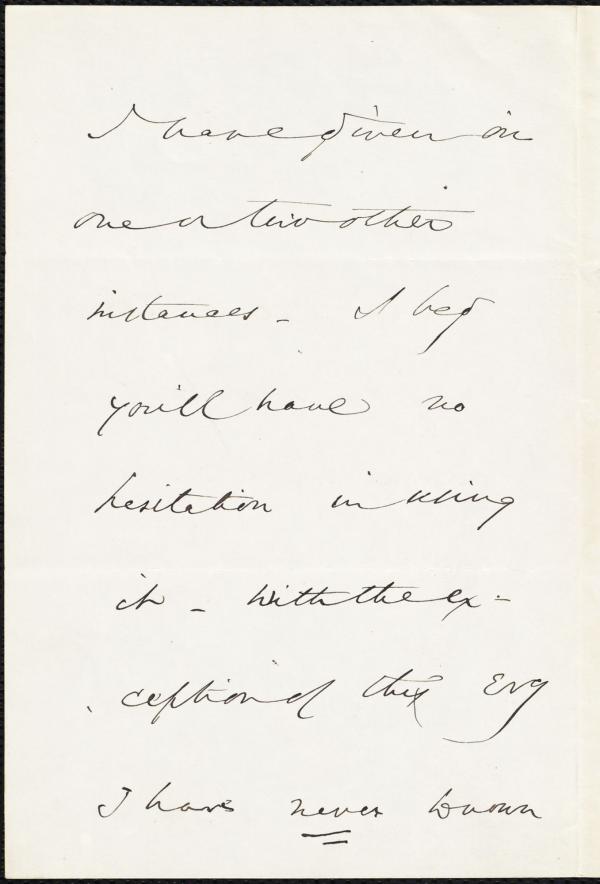 I have given in
one or two other
instances - I beg
you'll have no
hesitation in using
it - with the ex-
ception of this Evg
I have never known